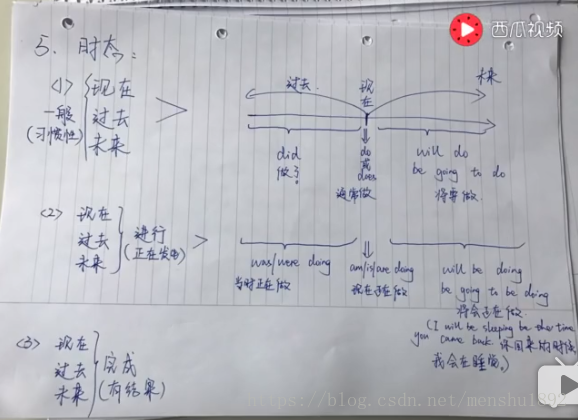 5. 时态:
西瓜视频
<1> 现在
一般 过去
(习惯性) 未来
过去 现在 未来
did
做了
do
或
does
通常做
will do
be going to do
将要做.
<2> 现在
过去 进行
未来 (正在发生)
was/were doing
当时正在做
am/is/are doing
现在正在做
will be doing
be going to be doing
将会正在做.
(I will be sleeping be the time
you came back 你回来的时候
我会在睡觉.)
<3> 现在
过去 完成
未来 (有结果)
https://blog.csdn.net/menshu1892